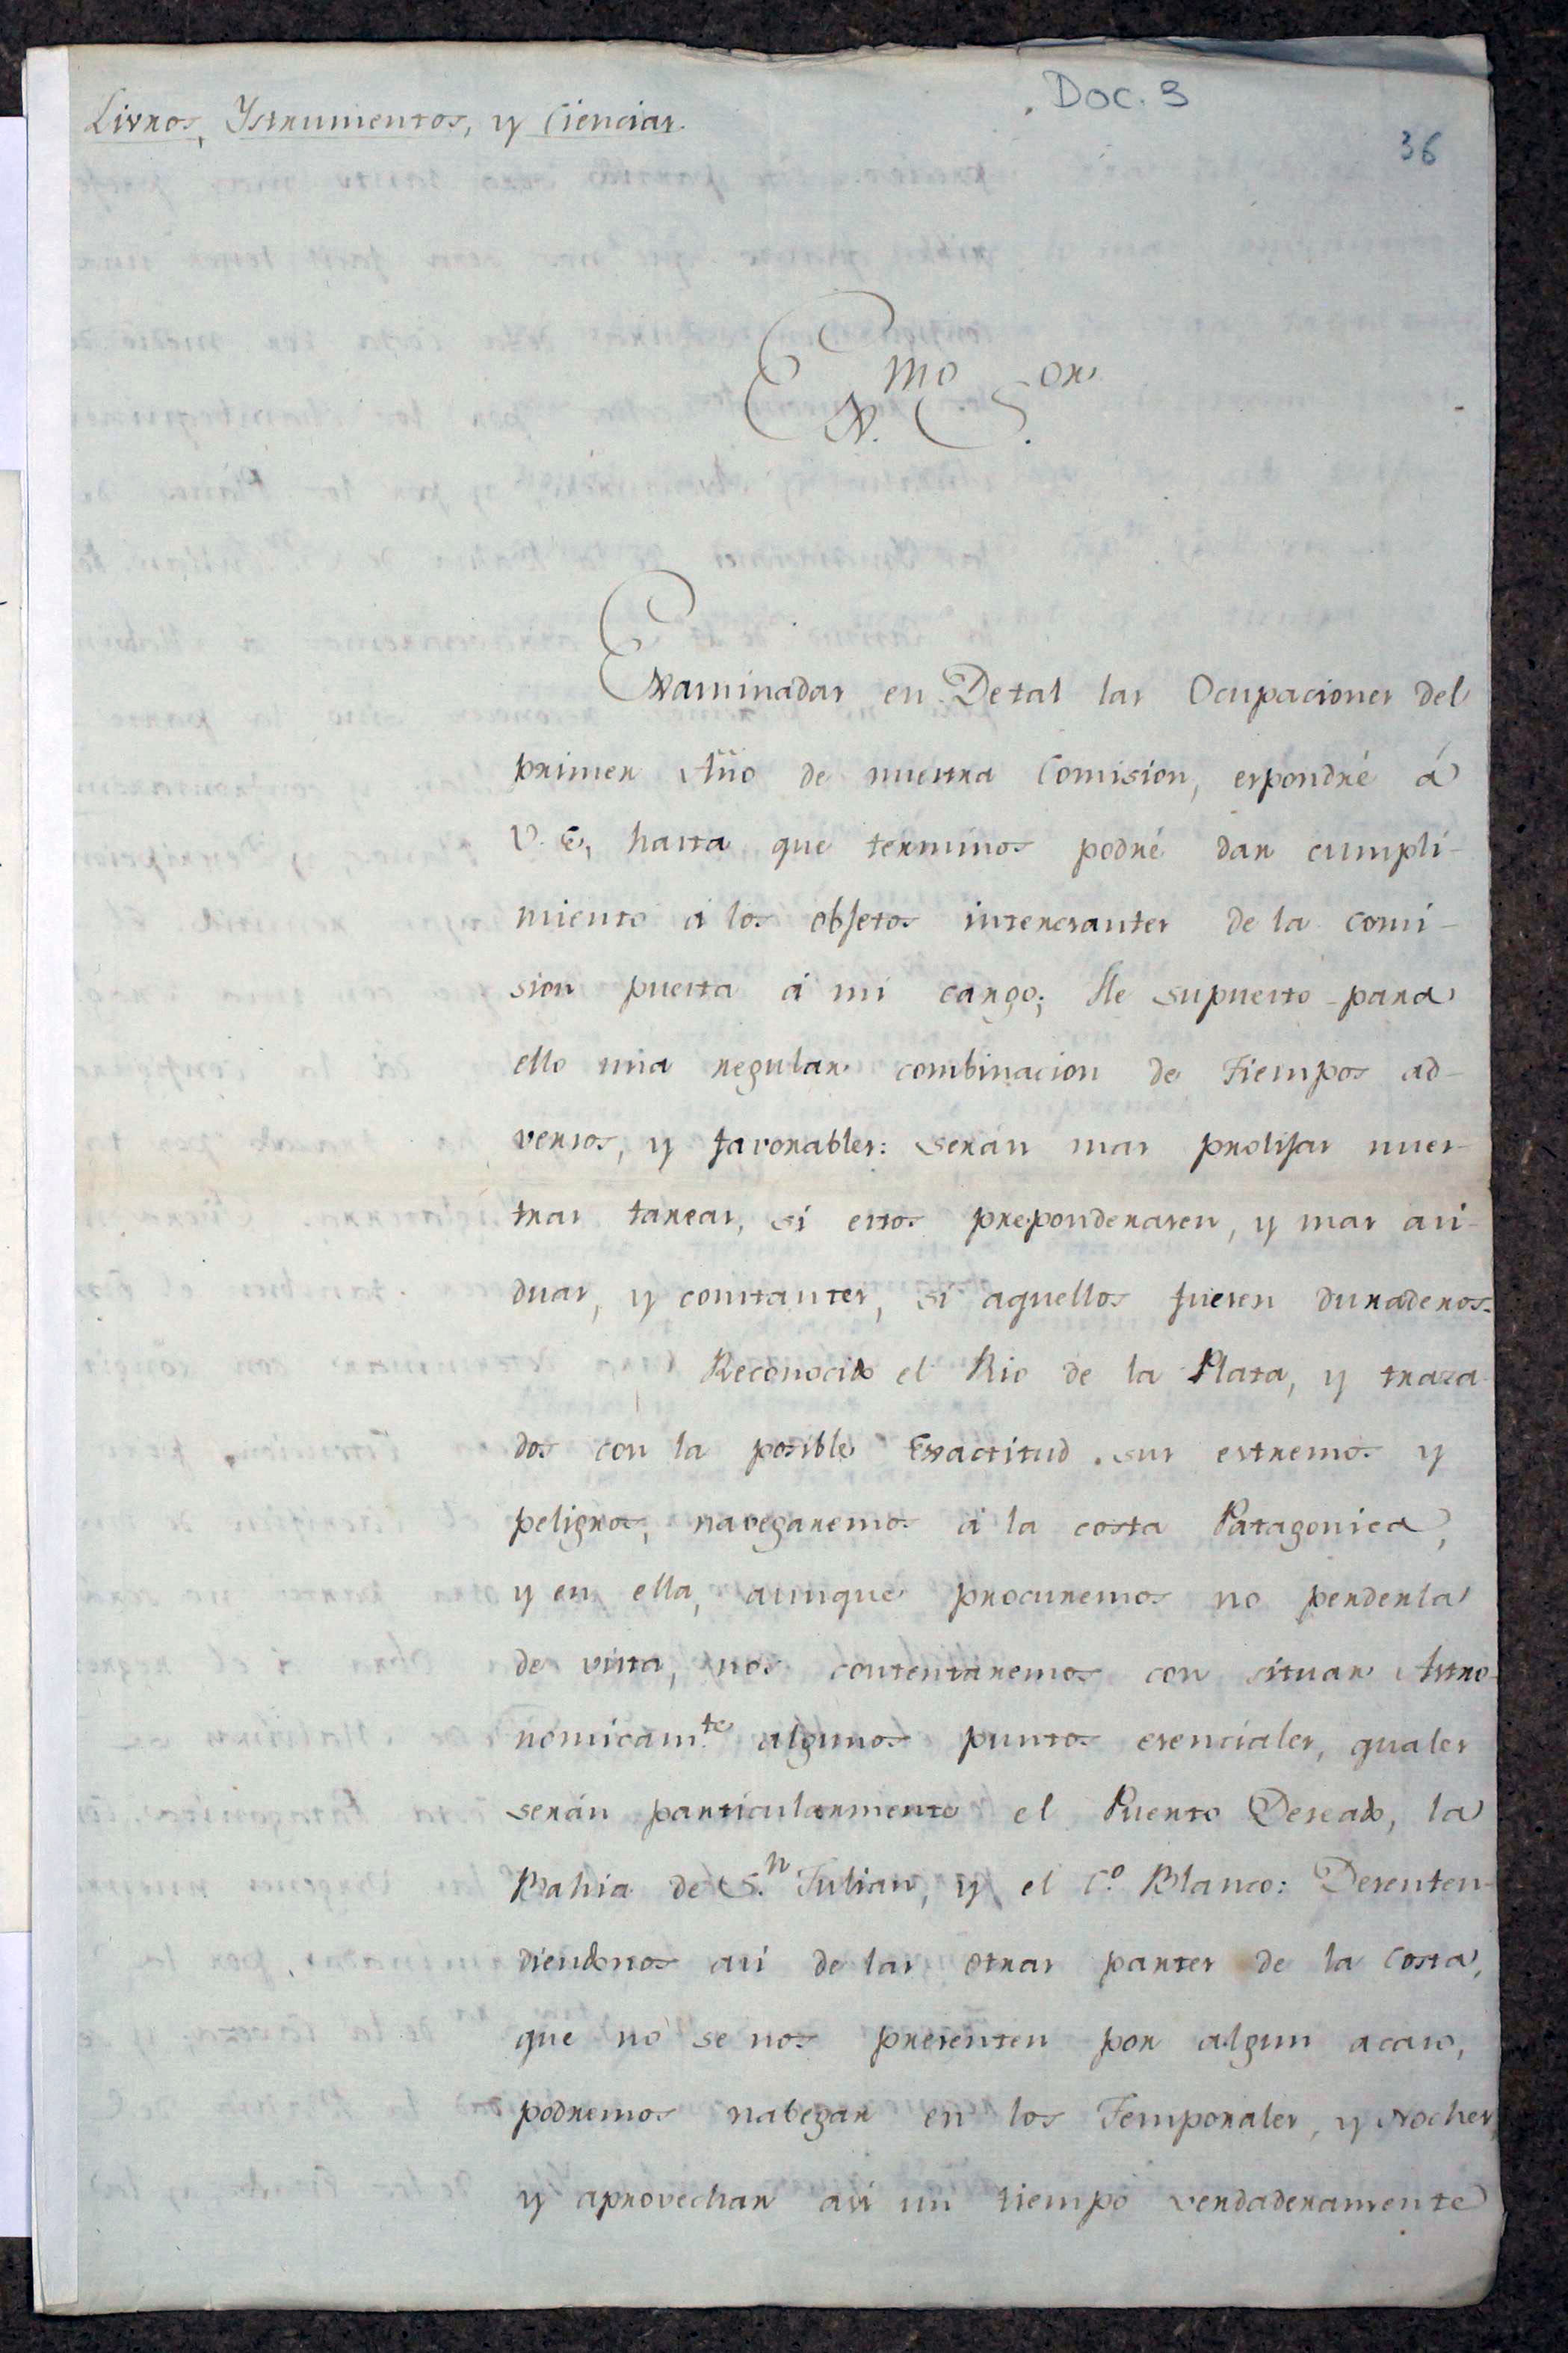 Doc. 3
36
Livros, Ystrumentos, y Ciencias.
Exmo Sor.
Examinadas en Detal las Ocupaciones del
primer Año de nuestra Comision, espondré á
V. E, hasta que términos podré dar cumpli-
miento á los objetos interesantes de la comi-
sion puesta á mi cargo; He supuesto para
ello una regular combinacion de Tiempos ad-
versos, y favorables: serán mas prolijas nues-
tras tareas, si estos preponderasen, y mas asi-
duas, y constantes, si aquellos fuesen duraderos.
Reconocido el Rio de la Plata, y traza-
dos con la posible Exactitud sus estremos y
peligros, navegaremos á la costa Patagonica,
y en ella, aunque procuremos no perderla
de vista, nos contentaremos con situar Astro-
nomicam.te algunos puntos esenciales, quales
serán particularmente el Puerto Deseado, la
Bahia de S.n Julian, y el C.o Blanco: Desenten-
diendonos asi de las otras partes de la Costa,
que no se nos presenten por algun acaso,
podremos nabegar en los Temporales, y Noches
y aprovechar asi un tiempo verdaderamente